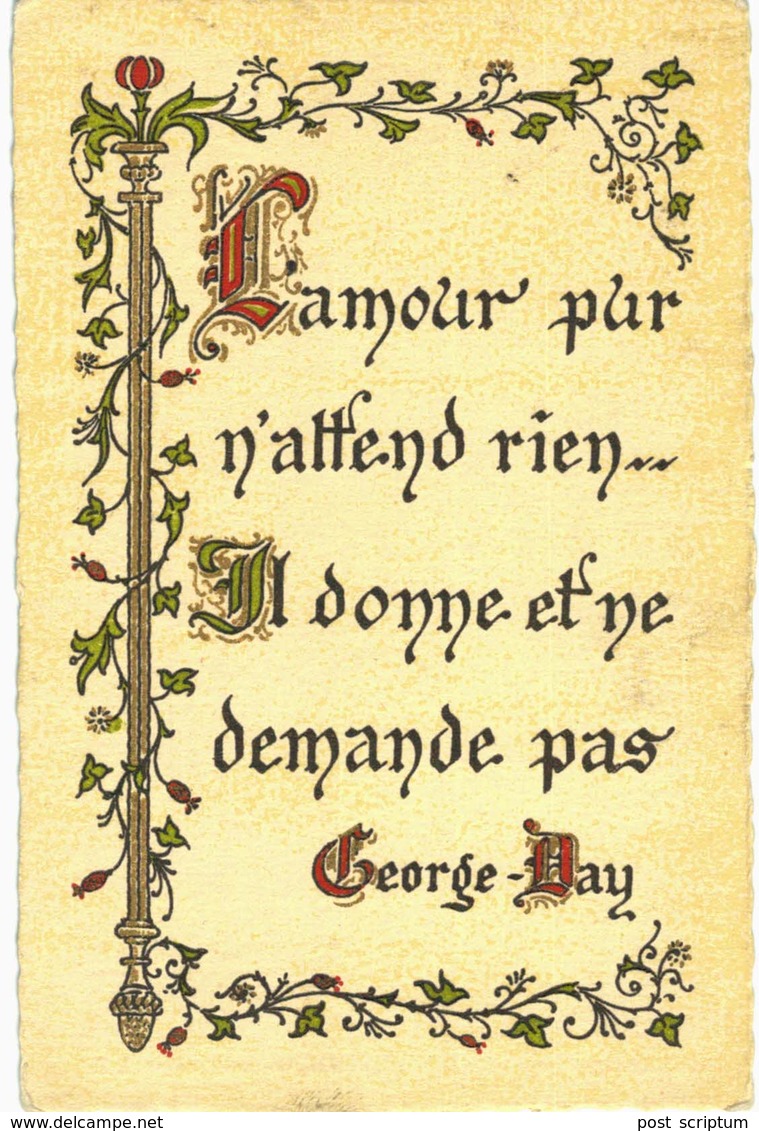 L'amour pur
n'attend rien..
Il donne et ne
demande pas
George-Day
www.delcampe.net
post scriptum